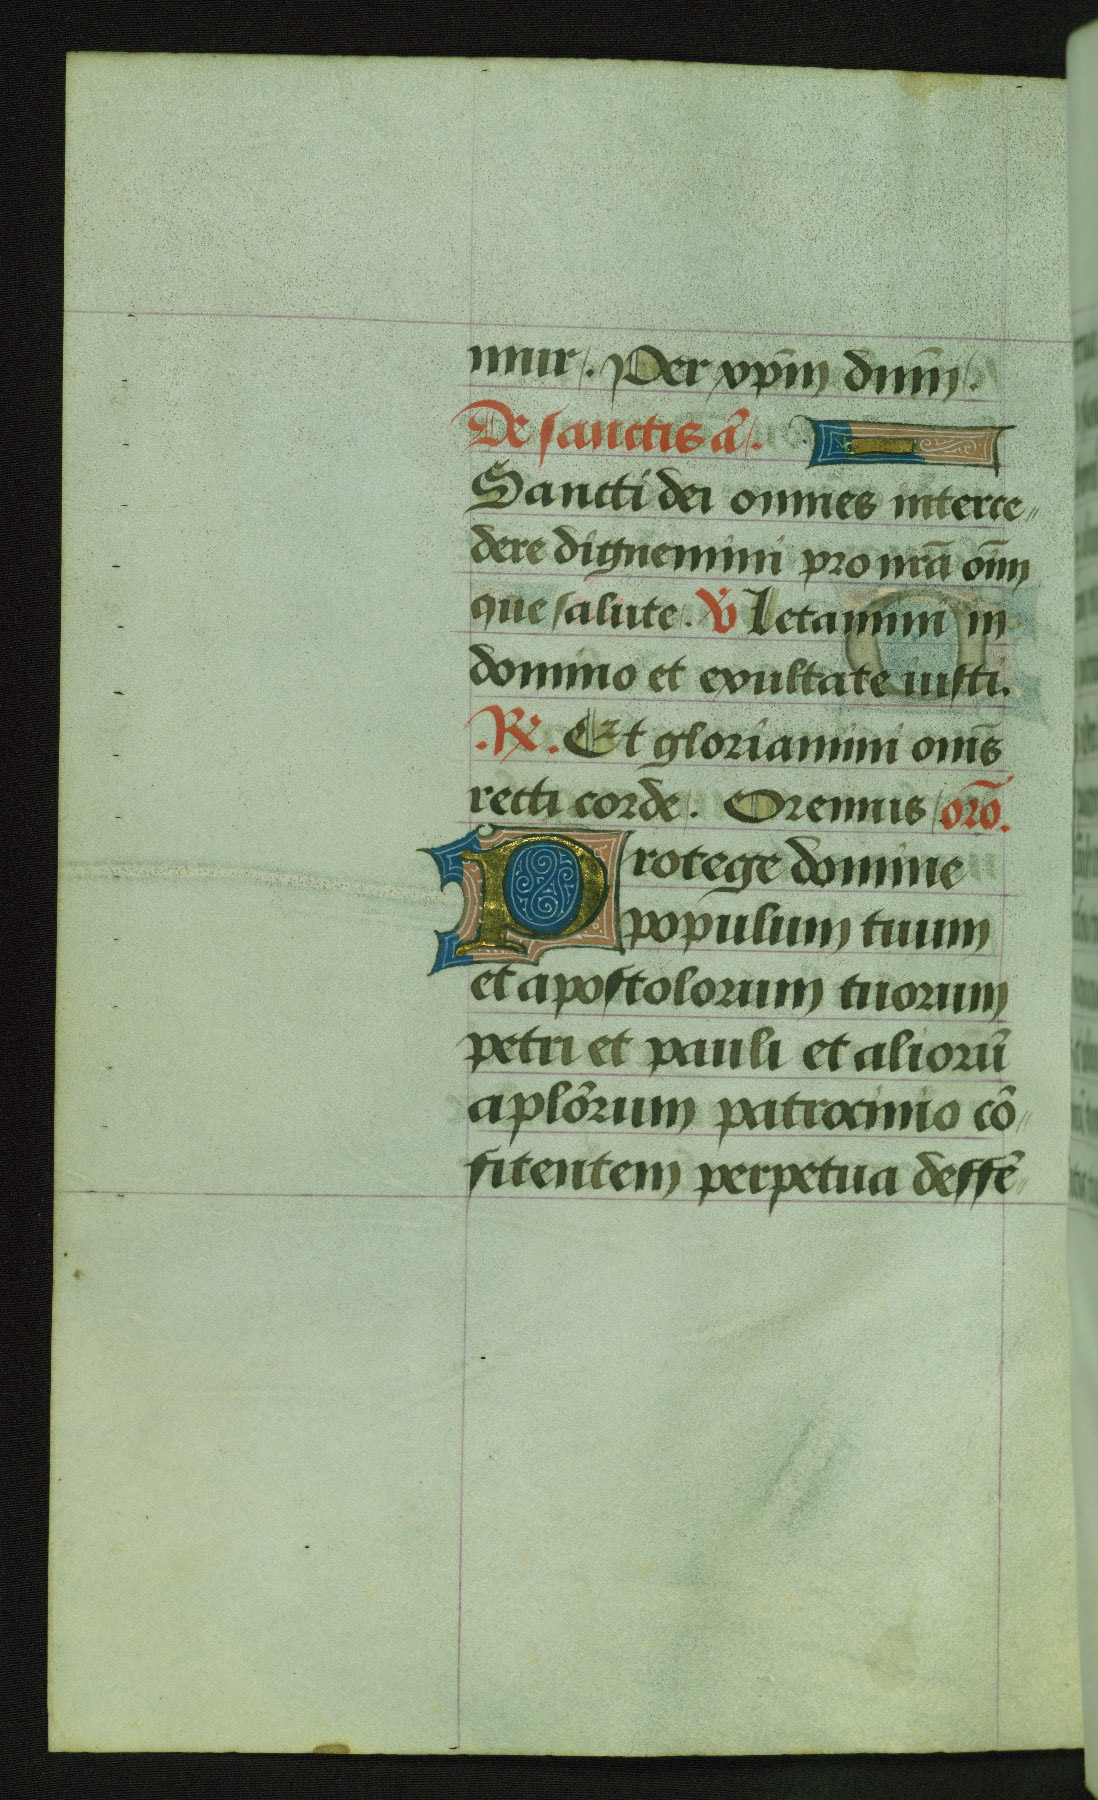 mur. Per xp̄m dn̄m.
De sanctis ā.
Sancti dei omnes interce„
dere dignemini pro nr̄a om̄n
que salute. V̄ Letamini in
domino et exultate iusti.
.R̄. Et gloriamini om̄s
recti corde. Oremus or̄o.
Protege domine
populum tuum
et apostolorum tuorum
petri et pauli et aliorū
aplōrum patrocinio cō„
fitentem perpetua deffē„